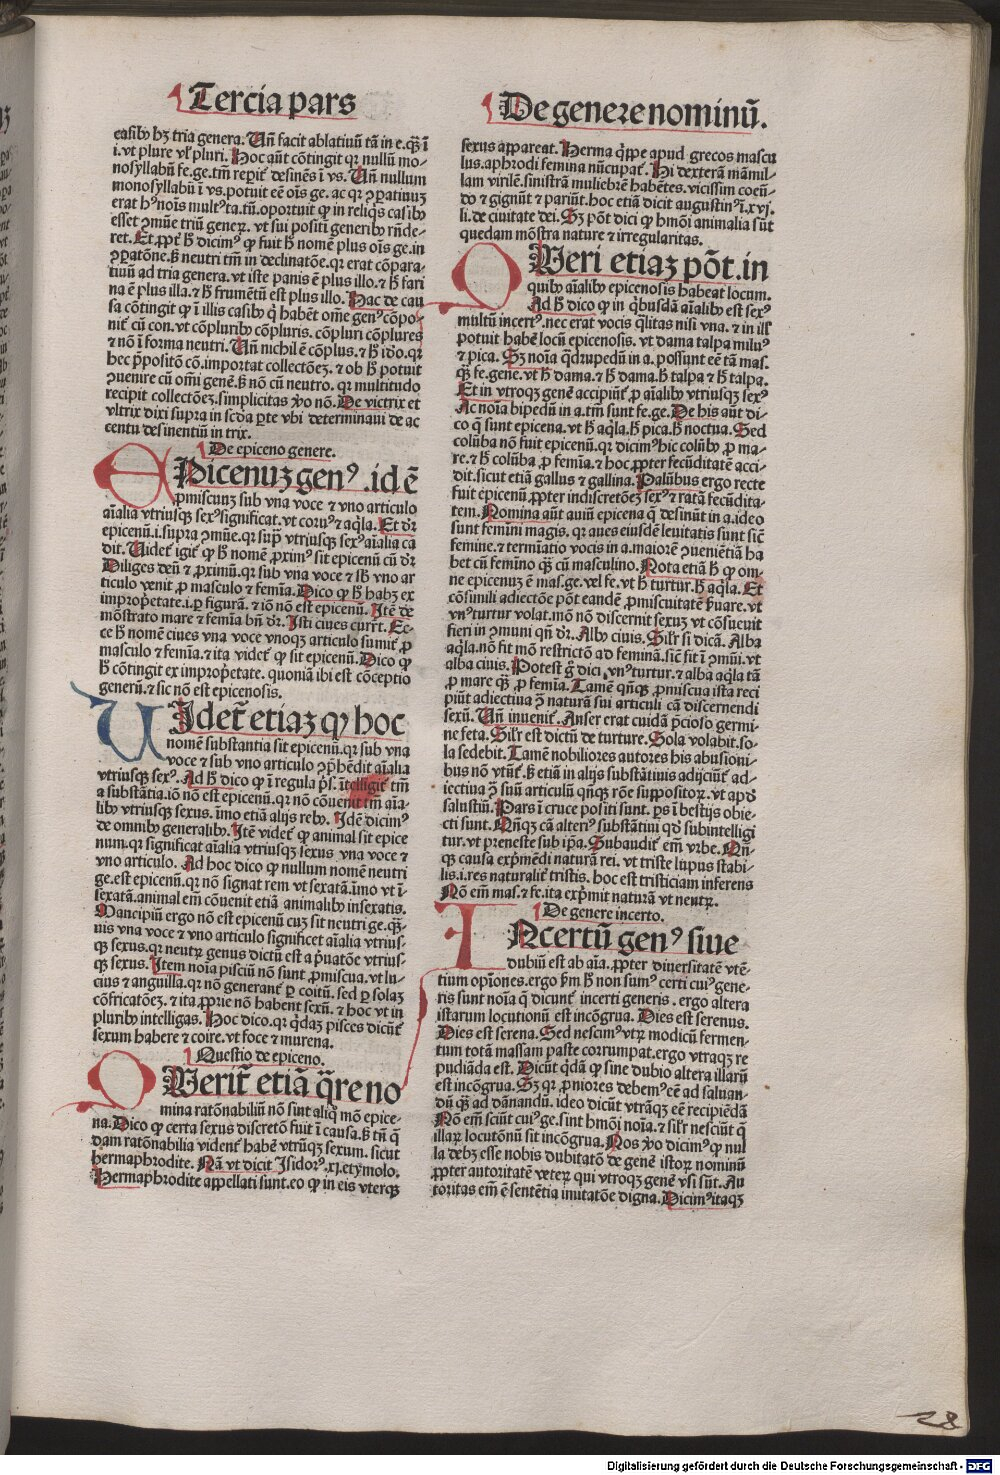 Tercia pars
casibꝰ hꝫ tria genera. Uñ facit ablatiuū tā in e. q̄ꝫ ī
i. vt plure vl̓ pluri. Hoc aūt cōtingit qꝛ nullū mo⸗
nosyllabū fe. ge. tm̄ reperit̄ desinēs ī vs. Uñ nullum
monosyllabū ī vs. potuit eē oīs ge. ac qꝛ ꝯparatiuū
erat hꝰ noīs multꝰ ta. tū. oportuit ꝙ in reliq̄s casibꝰ
esset ꝯmūe triū generꝝ. vt sui positi generibꝰ rn̄de⸗
ret. Et ꝓpt̄ ħ dicimꝰ ꝙ fuit ħ nomē plus oīs ge. in
ꝯparatōne. sꝫ neutri tm̄ in declinatōe. qꝛ erat cōpara⸗
tiuū ad tria genera. vt iste panis ē plus illo. ⁊ ħ fari
na ē plus illa. ⁊ ħ frumētū est plus illo. Hac de cau
sa cōtingit ꝙ ī illis casibꝰ q̄ habēt om̄e genꝰ cōpo⸗
nit̄ cū con. vt cōpluribꝰ cōpluris. cōpluri cōplures
⁊ nō ī forma neutri. Uñ nichil ē cōplus. ⁊ ħ iđo. qꝛ
hec p̄positō cō. importat collectōeꝫ. ⁊ ob ħ potuit
ꝯuenire cū om̄i genē. sꝫ nō cū neutro. qꝛ multitudo
recipit collectōeꝫ. simplicitas ꝟo nō. De victrix et
vltrix dixi supra in scđa ꝑte vbi determinaui de ac
centu desinentiū in trix.
De epiceno genere.
EPicenuꝫ genꝰ. id ē
ꝓmiscuuꝫ sub vna voce ⁊ vno articulo
aīalia vtriusqꝫ sexꝰ significat. vt coruꝰ ⁊ aq̄la. Et dr̄
epicenū. i. supra ꝯmūe. qꝛ sup̄ vtriusqꝫ sexꝰ aīalia ca
dit. Uidet̄ igit̄ ꝙ ħ nomē ꝓximꝰ sit epicenū cū dr̄
Diliges deū ⁊ ꝓximū. qꝛ sub vna voce ⁊ sb̄ vno ar
ticulo venit ꝓ masculo ⁊ femīa. Dico ꝙ ħ habꝫ ex
improp̄etate. i. ꝑ figurā. ⁊ iō nō est epicenū. Itē de
mōstrato mare ⁊ femīa bn̄ dr̄. Isti ciues currūt. Ec⸗
ce ħ nomē ciues vna voce vnoqꝫ articulo sumit̄ ꝓ
masculo ⁊ femīa. ⁊ ita videt̄ ꝙ sit epicenū. Dico ꝙ
ħ cōtingit ex improp̄etate. quoniā ibi est cōceptio
generū. ⁊ sic nō est epicenosis.
UIdet̄ etiaꝫ ꝙ hoc
nomē substantia sit epicenū. qꝛ sub vna
voce ⁊ sub vno articulo ꝯp̄hēdit aīalia
vtriusqꝫ sexꝰ. Ad ħ dico ꝙ ī regula p̄s. ītelligit̄ tm̄
a substātia. iō nō est epicenū. qꝛ nō cōuenit tm̄ aīa⸗
libꝰ vtriusqꝫ sexus. īmo etiā alijs rebꝰ. Idē dicimꝰ
de omnibꝰ generalibꝰ. Itē videt̄ ꝙ animal sit epice
num. qꝛ significat aīalia vtriusqꝫ sexus vna voce ⁊
vno articulo. Ad hoc dico ꝙ nullum nomē neutri
ge. est epicenū. qꝛ nō signat rem vt sexatā. īmo vt ī⸗
sexatā. animal em̄ cōuenit etiā animalibꝰ insexatis.
Mancipiū ergo nō est epicenū cuꝫ sit neutri ge. q̄ꝫ⸗
uis vna voce ⁊ vno articulo significet aīalia vtrius⸗
qꝫ sexus. qꝛ neutrꝝ genus dictū est a p̄uatōe vtrius⸗
qꝫ sexus. Item noīa pisciū nō sunt ꝓmiscua. vt lu⸗
cius ⁊ anguilla. qꝛ nō generant̄ ꝑ coitū. sed ꝑ solaꝫ
cōfricatōeꝫ. ⁊ ita ꝓprie nō habent sexū. ⁊ hoc vt in
pluribꝰ intelligas. Hoc dico. qꝛ q̄daꝫ pisces dicūt̄
sexum habere ⁊ coire. vt foce ⁊ murena.
Questio de epiceno.
QUerit̄ etiā q̄re no
mina ratōnabiliū nō sint aliq̄ mō epice⸗
na. Dico ꝙ certa sexus discretō fuit ī causa. sꝫ tn̄ q̄
dam ratōnabilia vident̄ habē vtrūqꝫ sexum. sicut
hermaphrodite. Nā vt dicit Isidorꝰ. xj. etymolo.
Hermaphrodite appellati sunt. eo ꝙ in eis vterqꝫ
De genere nominū.
sexus appareat. Herma q̄ppe apud grecos mascu
lus. aphrodi femina nūcupat̄. Hi dexterā māmil⸗
lam virilē. sinistrā muliebrē habētes. vicissim coeū⸗
do ⁊ gignūt ⁊ pariūt. hoc etiā dicit augustinꝰ ī. xvj.
li. de ciuitate dei. Sꝫ pōt dici ꝙ hmōi animalia sūt
quedam mōstra nature ⁊ irregularitas.
QUeri etiaꝫ pōt. in
quibꝰ aīalibꝰ epicenosis habeat locum.
Ad ħ dico ꝙ in q̄busdā aīalibꝰ est sexꝰ
multū incertꝰ. nec erat vocis q̄litas nisi vna. ⁊ in illꝭ
potuit habē locū epicenosis. vt dama talpa miluꝰ
⁊ pica. Sꝫ noīa q̄drupedū in a. possunt eē tā mas.
q̄ꝫ fe. gene. vt ħ dama. ⁊ ħ dama. ħ talpa ⁊ ħ talpa.
Et in vtroqꝫ genē accipiūt̄ ꝓ aīalibꝰ vtriusqꝫ sexꝰ
Ac noīa bipedū in a. tm̄ sunt fe. ge. De his aūt di⸗
co q̄ sunt epicena. vt ħ aq̄la. ħ pica. ħ noctua. Sed
colūba nō fuit epicenū. qꝛ dicimꝰ hic colūbꝰ ꝓ ma⸗
re. ⁊ ħ colūba ꝓ femīa. ⁊ hoc ꝓpter fecūditatē acci⸗
dit. sicut etiā gallus ⁊ gallina. Palūbus ergo recte
fuit epicenū ꝓpter indiscretōeꝫ sexꝰ ⁊ ratā fecūdita⸗
tem. Nomina aūt auiū epicena q̄ desinūt in a. ideo
sunt feminī magis. qꝛ aues eiusdē leuitatis sunt sicut
femine. ⁊ termīatio vocis in a. maiorē ꝯueniētiā ha
bet cū femīno q̄ꝫ cū masculino. Nota etiā ħ ꝙ om⸗
ne epicenuꝫ ē mas. ge. vel fe. vt ħ turtur. ħ aq̄la. Et
cōsimili adiectōe pōt eandē ꝓmiscuitatē ẜuare. vt
vnꝰ turtur volat. mō nō discernit sexuꝫ vt cōsueuit
fieri in ꝯmuni qn̄ dr̄. Albꝰ ciuis. Silr̄ si dicā. Alba
aq̄la. nō fit mō restrictō ad feminā. sic̄ fit ī ꝯmūi. vt
alba ciuis. Potest g̊ dici. vnꝰ turtur. ⁊ alba aq̄la tā
ꝓ mare q̄ꝫ ꝓ femīa. Tamē qn̄qꝫ ꝓmiscua ista reci
piūt adiectiua ꝯ̄ naturā sui articuli cā discernendi
sexū. Uñ inuenit̄. Anser erat cuidā p̄cioso germi⸗
ne feta. Silr̄ est dictū de turture. Sola volabit. so⸗
la sedebit. Tamē nobiliores autores his abusioni⸗
bus nō vtūt̄. sꝫ etiā in alijs substātiuis adijciūt̄ ad⸗
iectiua ꝯ̄ suū articulū qn̄qꝫ rōe suppositorꝝ. vt apđ
salustiū. Pars ī cruce positi sunt. ꝑs ī bestijs obie⸗
cti sunt. Qn̄qꝫ cā alteriꝰ substātiui qđ subintelligi
tur. vt preneste sub ip̄a. Subaudit̄ em̄ vrbe. Qn̄⸗
qꝫ causa exp̄mēdi naturā rei. vt triste lupus stabu⸗
lis. i. res naturalit̄ tristis. hoc est tristiciam inferens
Nō em̄ mas. ⁊ fe. ita exp̄mit naturā vt neutrꝝ.
De genere incerto.
INcertū genꝰ siue
dubiū est ab aīa. ꝓpter diuersitatē vtē⸗
tium opīones. ergo ẜm ħ non sumꝰ certi cuiꝰ gene⸗
ris sunt noīa q̄ dicunt̄ incerti generis. ergo altera
istarum locutionū est incōgrua. Dies est serenus.
Dies est serena. Sed nescimꝰ vtrꝝ modicū fermen⸗
tum totā massam paste corrumpat. ergo vtraqꝫ re
pudiāda est. Dicūt q̄dā ꝙ sine dubio altera illarū
est incōgrua. Sꝫ qꝛ ꝓniores debemꝰ eē ad saluan⸗
dū q̄ꝫ ad dānandū. ideo dicūt vtrāqꝫ eē recipiēdā
Nō em̄ sciūt cuiꝰ ge. sint hmōi noīa. ⁊ silr̄ nesciūt q̄
illarꝝ locutōnū sit incōgrua. Nos ꝟo dicimꝰ ꝙ nul
la debꝫ esse nobis dubitatō de genē istorꝝ nominū
ꝓpter autoritatē veterꝝ qui vtroqꝫ genē vsi sūt. Au
toritas em̄ ē sentētia imitatōe digna. Dicimꝰ itaqꝫ
28
Digitalisierung gefördert durch die Deutsche Forschungsgemeinschaft - DFG